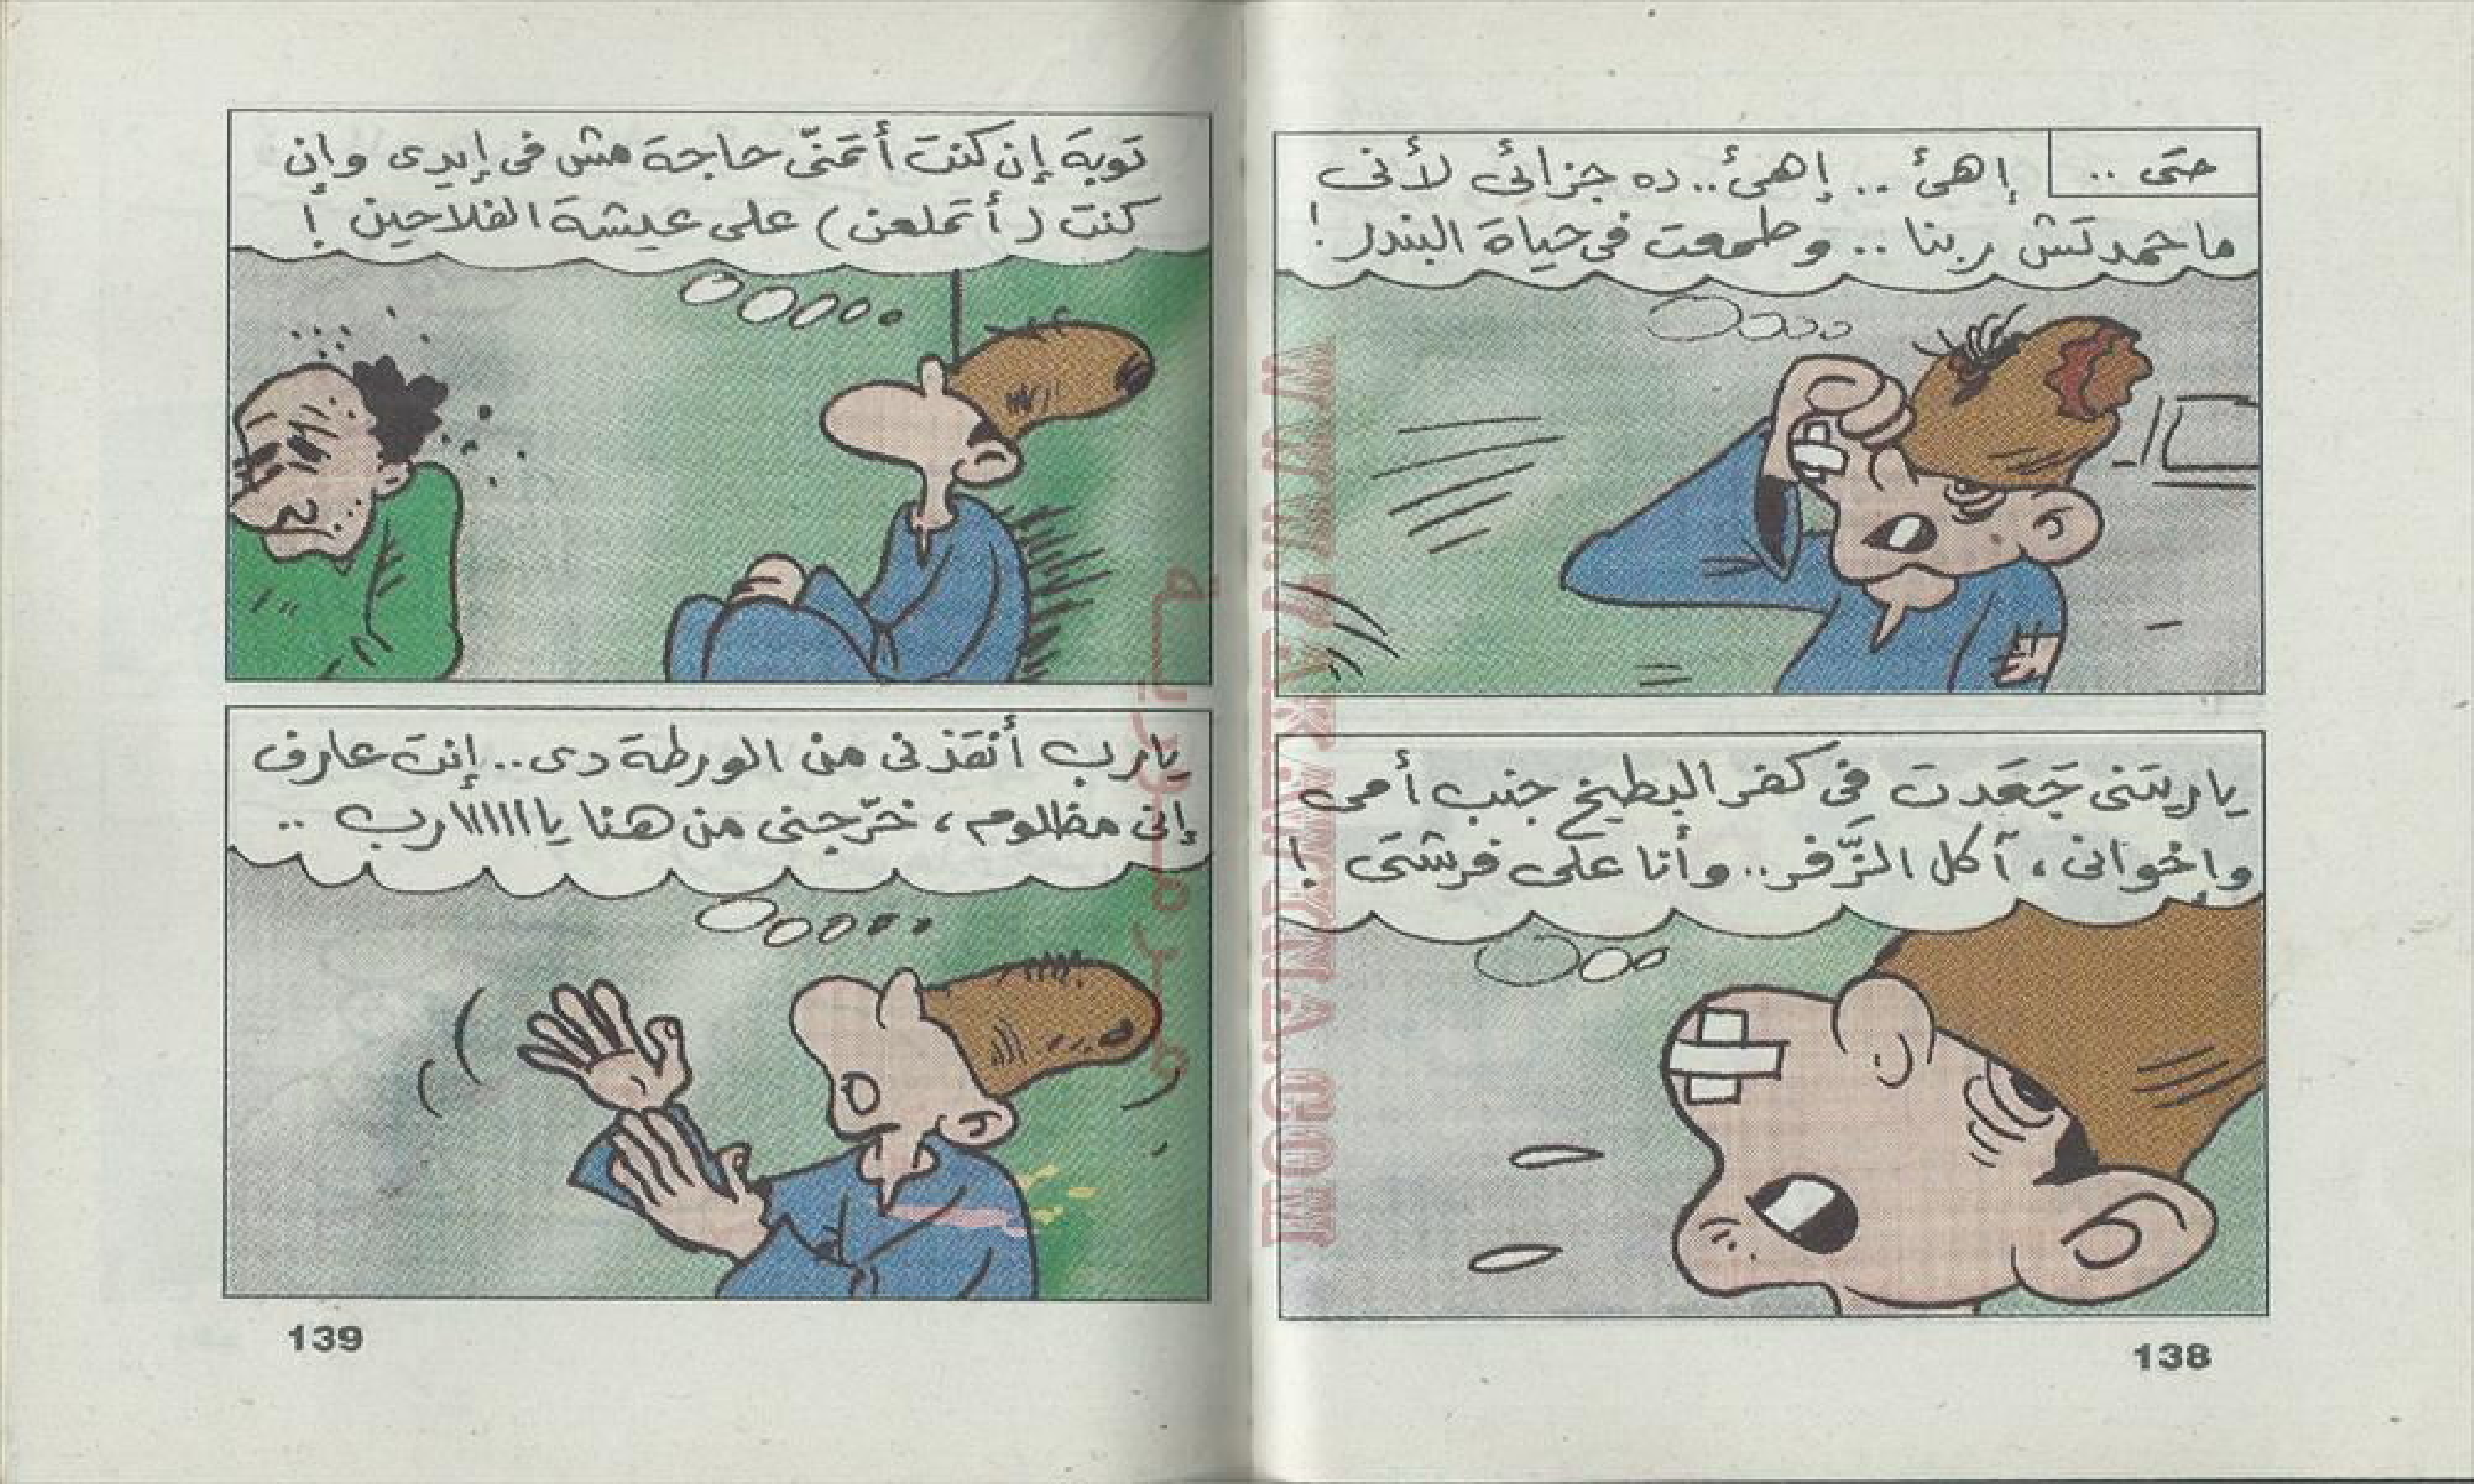 حتى ..
إهئ .. إهئ .. ده جزائى لأنى
ما حمدتش ربنا .. وطمعت فى حياة البندر !
ياريتنى جَعَدت فى كفر البطيخ جنب أمى
وإخوانى ، آكل الزَّفر .. وأنا على فرشتى !
138
توبة إن كنت أتمنّى حاجة مش فى إيدى وإن
كنت (أتملعن) على عيشة الفلاحين !
يارب أنقذنى من الورطة دى .. إنت عارف
إنى مظلوم ، خرّجنى من هنا يا اااااارب ..
139